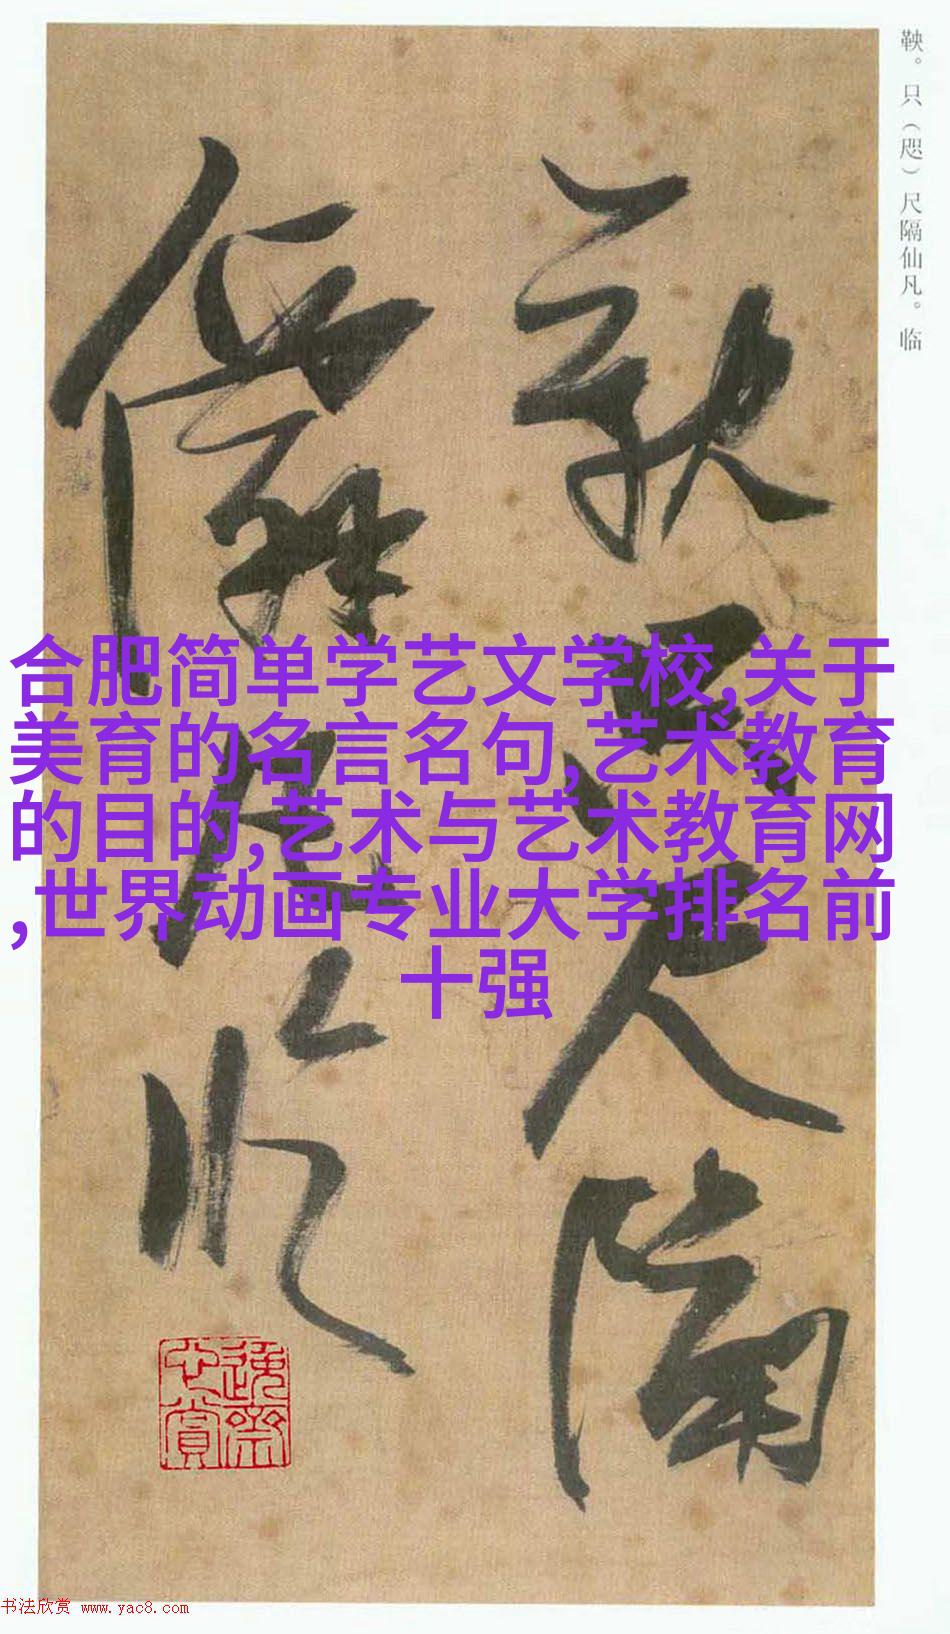 鞅。只（咫）尺隔仙凡。临
鞅只尺隔
僊凡临
合肥简单学艺文学校,关于
美育的名言名句,艺术教育
的目的,艺术与艺术教育网
,世界动画专业大学排名前
十强
书法欣赏 www.yac8.com